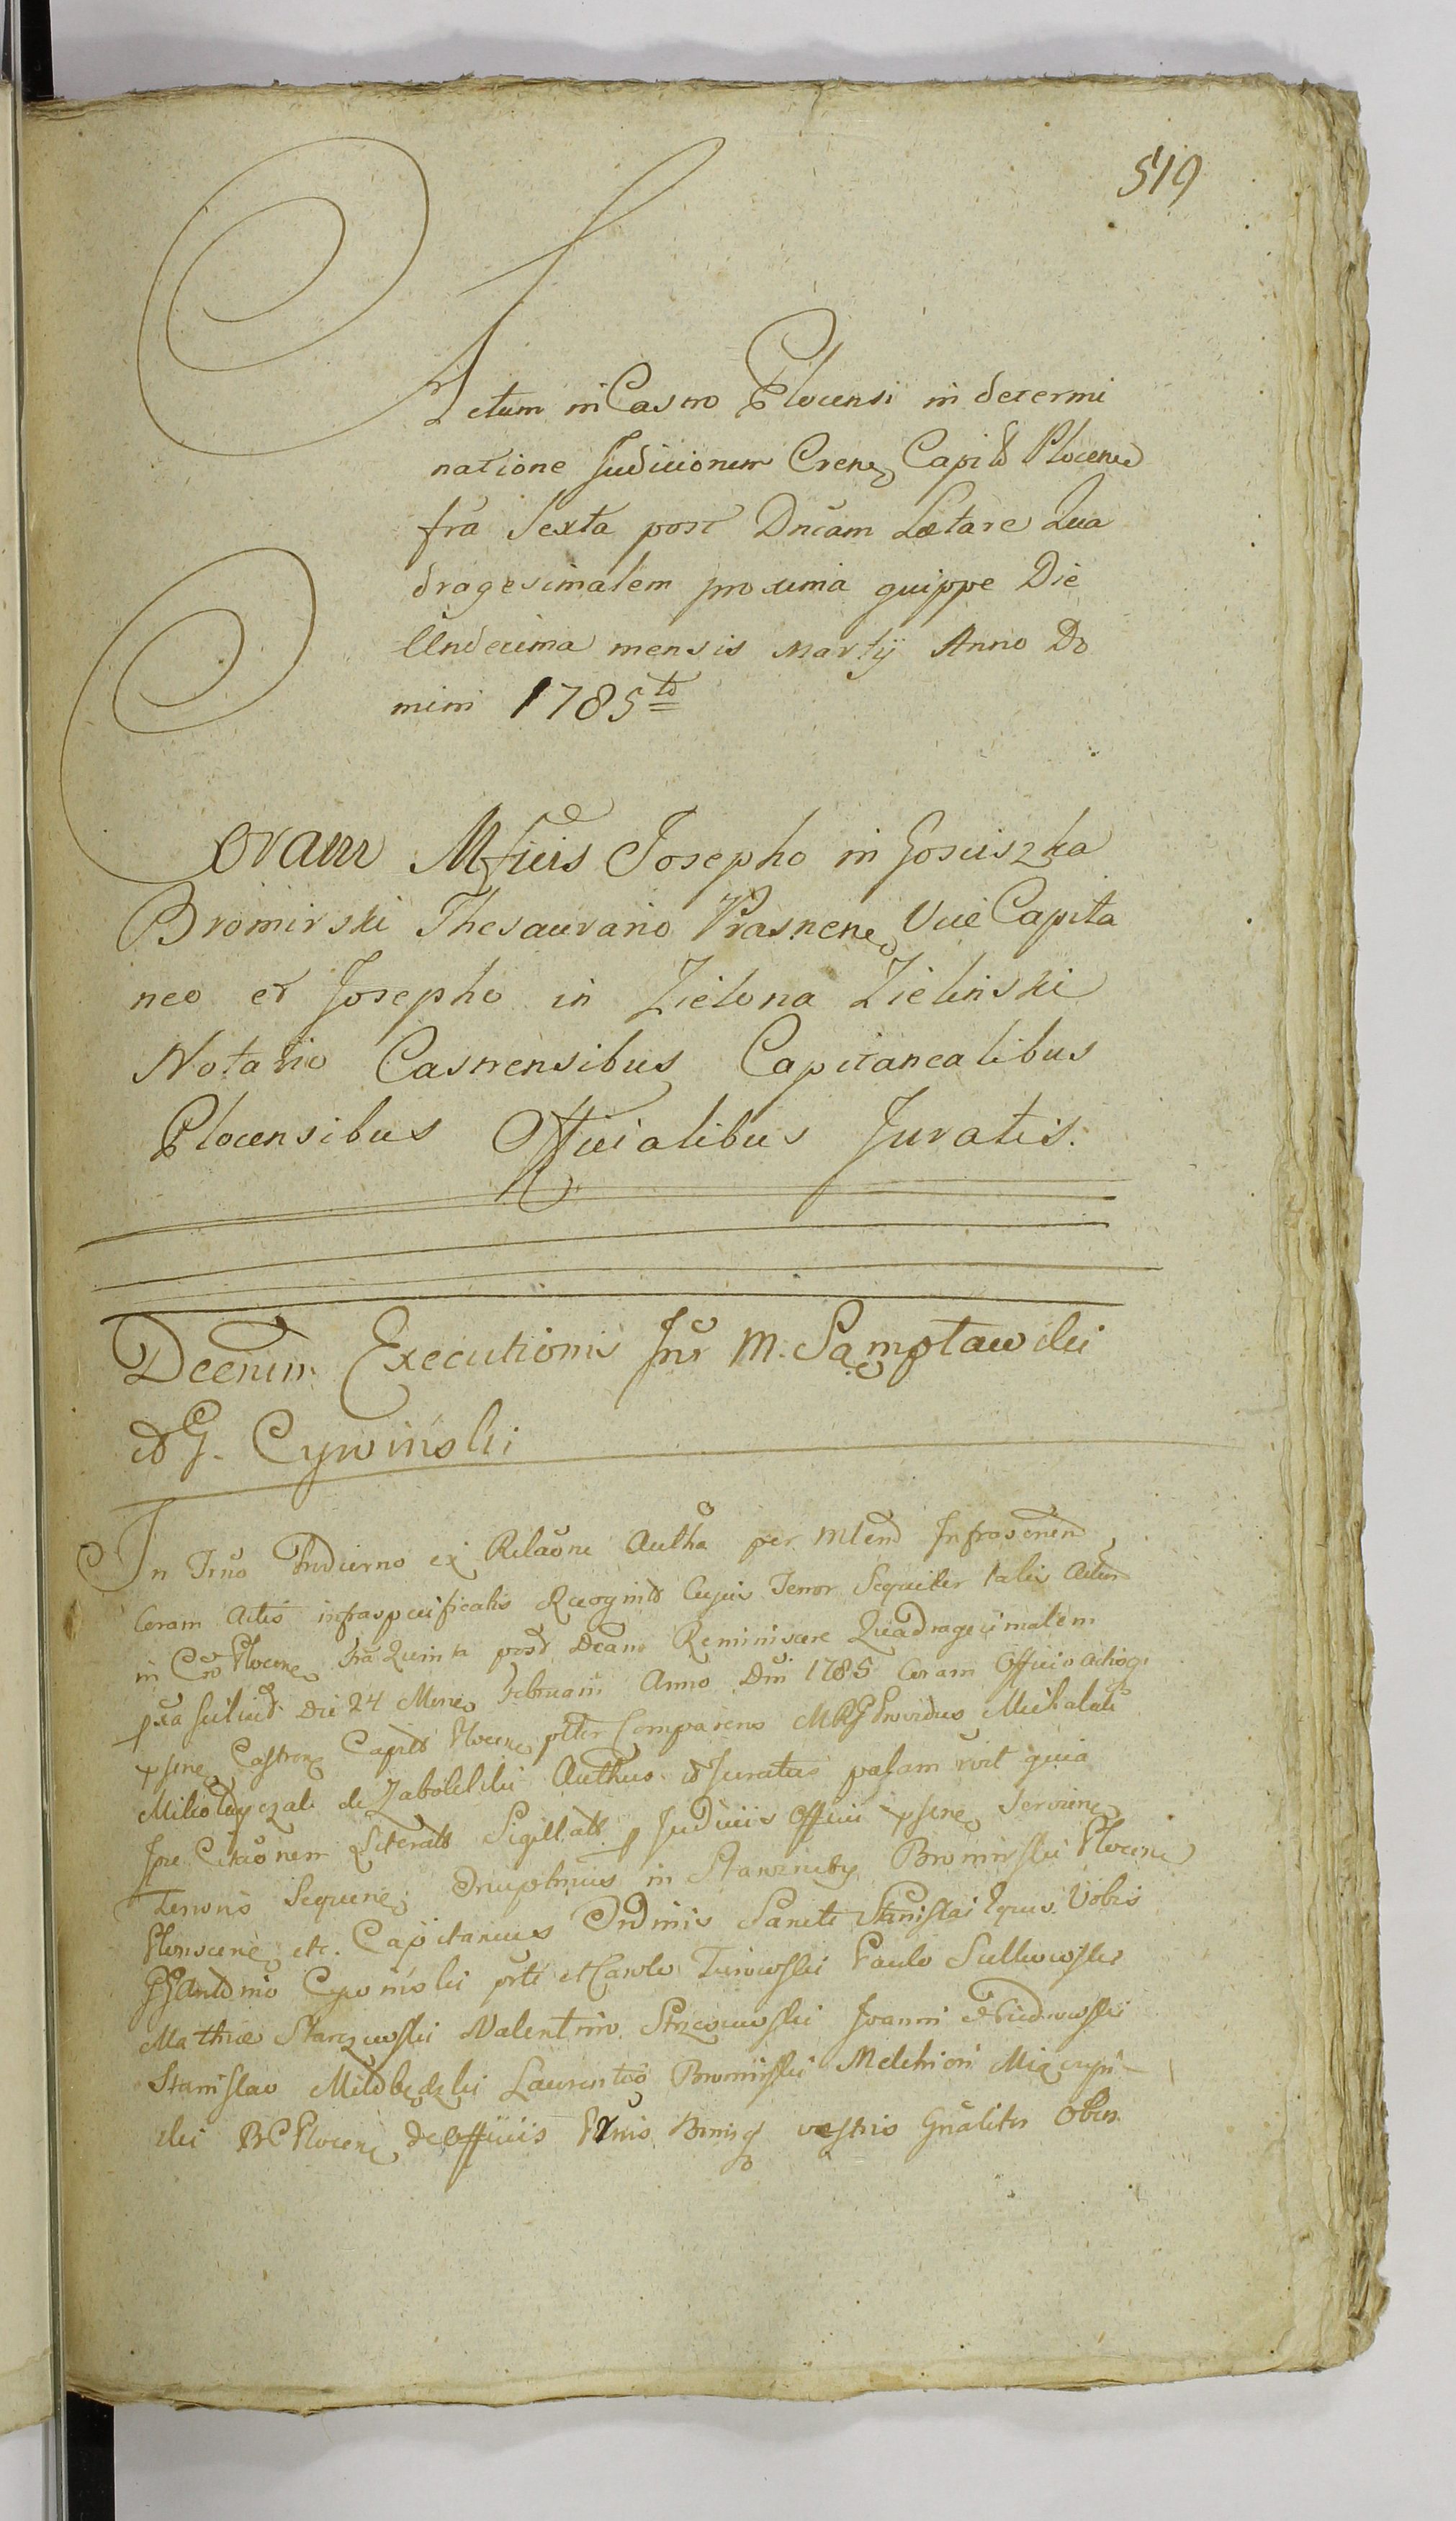 519
Actum in Castro Plocensi in determi
natione Judiciorum Crens Capit Plocens
fra Sexta post Dncam Lætare Qua
dragesimalem proxima quippe Die
Undecima mensis Martij Anno Do
mini 1785to
Coram Mficis Josepho in Gosciszka
Bromirski Thesaurario Prasnens Vice Capita
neo et Josepho in Zielona Zielinski
Notario Castrensibus Capitanealibus
Plocensibus Officialibus Juratis.
Decrum Executionis Inr M. Sampławski
et G. Cywinski
In Trno Hodierno ex Relaõne Autha per Mlend Infrascnen
Coram Actis infraspecificatis Recognit Cujus Tenor Sequitur talis Actum
in Cro Plocens fra Quinta post Dcam Reminiscere Quadragesimalem
pxa scilicet Die 24 Mens Februarii Anno Dni 1785 Coram Officio Actisq
psens Castrens Capit Plocens plter Comparens Providus Michalak
de Authus et Juratus palam rvit quia
Ipe Citaõnem Literatt Sigillatt Judiciis Officii psens Serviens
Tenoris Sequens in Bromirski Plocens
Plonscens etc. Capitaneus Ordinis Sancti Stanislai Eques Vobis
GG Antonio Cywinski prti et Carolo Turowski Paulo Sulkowski
Mathiæ Starczewski Valentino Joanni
Stanislao Milobędzki Laurentio Bromirski Melchiori Miączyn-
ski BC Plocens de Officiis Psnis Bonisq vestris Gnaliter Obus